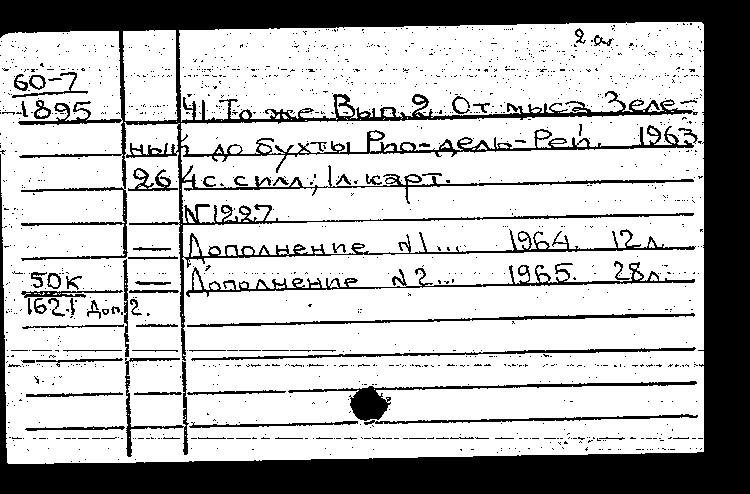 2 ол.
60-7
1895 Ч1. То же. Вып. 2. От мыса Зеле-
ный до бухты Рио-дель-Рей. 1963
264 с. с илл.; 1 л. карт.
N 1227.
— Дополнение N1... 1964. 12 л.
50К — Дополнение N2... 1965. 28 л.
1621 Доп. 2.